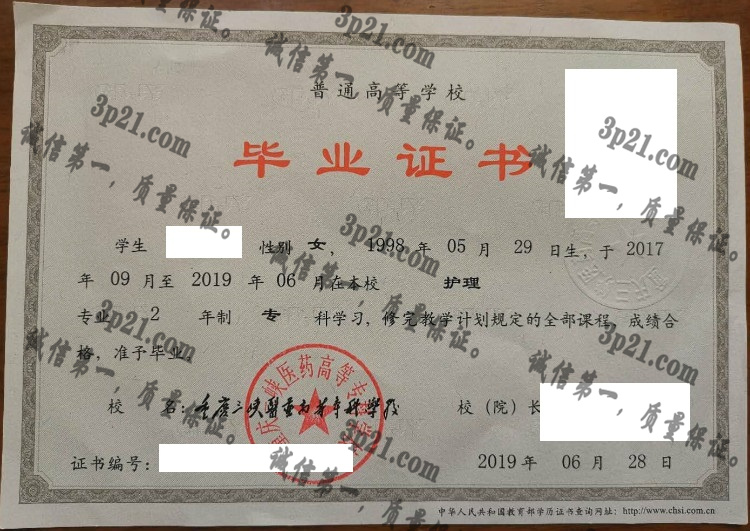 普通高等学校
毕业证书
学生 性别 女, 1998 年 05 月 29 日生, 于 2017
年 09 月至 2019 年 06 月在本校 护理
专业 2 年制 专 科学习, 修完教学计划规定的全部课程, 成绩合
格, 准予毕业。
校 名: 重庆三峡医药高等专科学校
校 (院) 长
证书编号:
2019 年 06 月 28 日
中华人民共和国教育部学历证书查询网址: http://www.chsi.com.cn
重庆三峡医药高等专科学校
3p21.com
诚信第一, 质量保证。
3p21.com
诚信第一, 质量保证。
3p21.com
诚信第一, 质量保证。
3p21.com
诚信第一, 质量保证。
3p21.com
诚信第一, 质量保证。
3p21.com
诚信第一, 质量保证。
3p21.com
诚信第一, 质量保证。
质量保证。
质量保证。